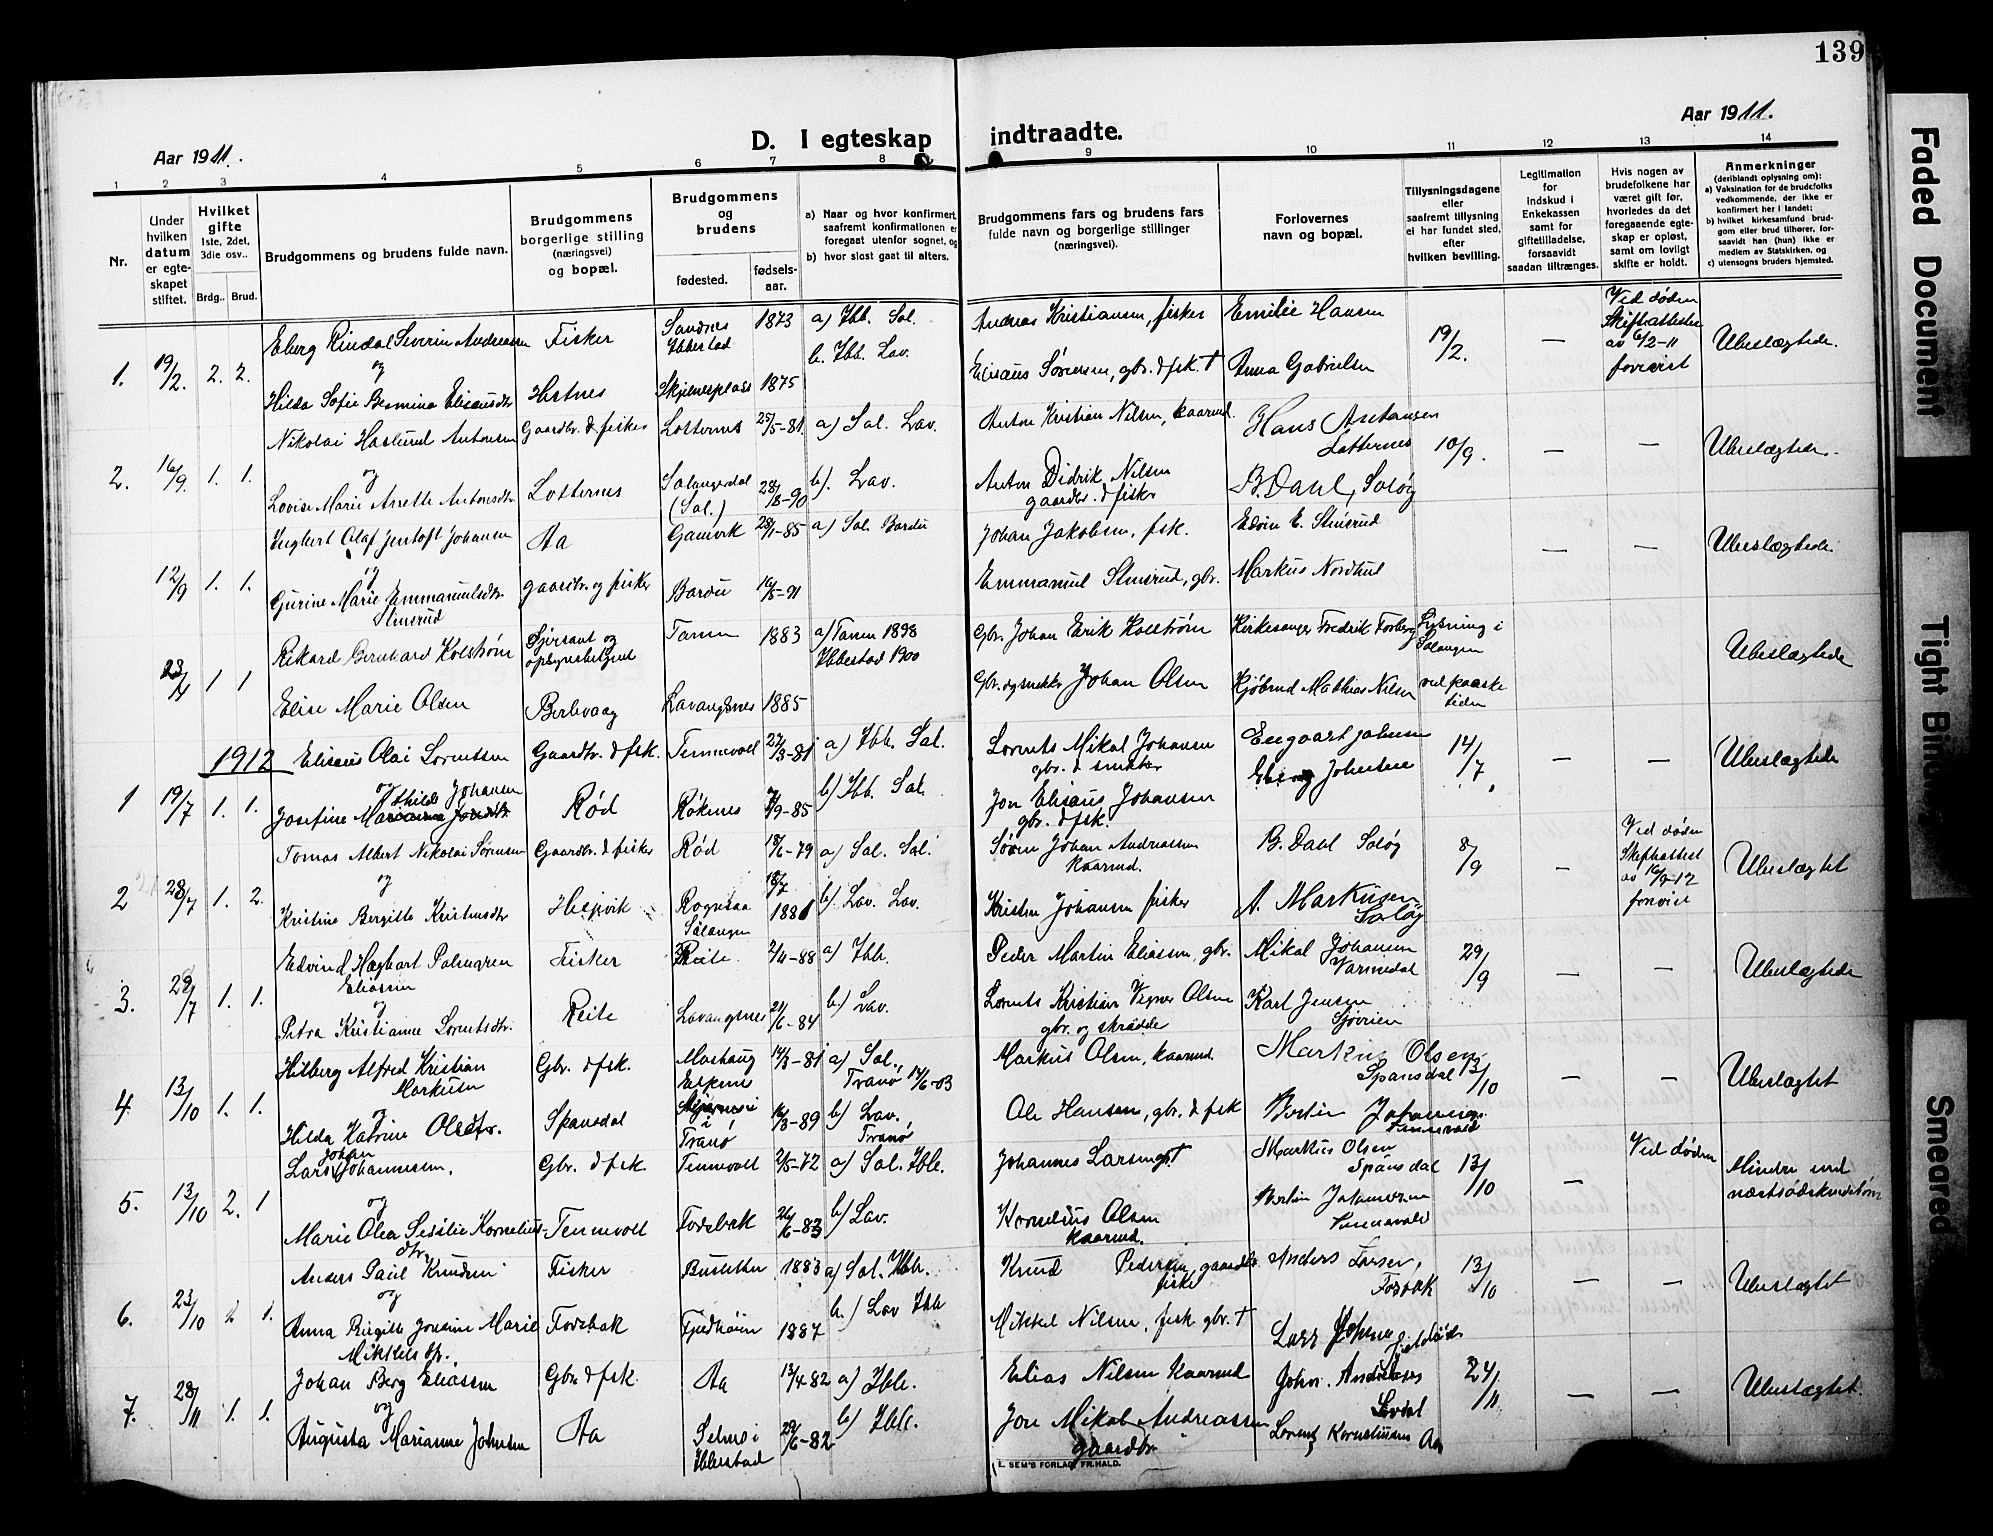 139
Aar 1911.
D. I egteskap indtraadte.
Aar 1911.
1 2 3 4 5 6 7 8 9 10 11 12 13 14
Nr.
Under hvilken datum er egteskapet stiftet.
Hvilket gifte
1ste, 2det, 3die osv..
Brdg.. Brud.
Brudgommens og brudens fulde navn.
Brudgommens borgerlige stilling (næringsvei) og bopæl.
Brudgommens og brudens
fødested.
fødselsaar.
a) Naar og hvor konfirmert, saafremt konfirmationen er foregaat utenfor sognet, og
b) hvor sidst gaat til alters.
Brudgommens fars og brudens fars fulde navn og borgerlige stillinger (næringsvei).
Forlovernes navn og bopæl.
Tillysningsdagene eller saafremt tillysning ei har fundet sted, efter hvilken bevilling.
Legitimation for indskud i Enkekassen samt for giftetilladelse, forsaavidt saadan tiltrænges.
Hvis nogen av brudefolkene har været gift før, hvorledes da det foregaaende egteskap er opløst, samt om lovligt skifte er holdt.
Anmerkninger (deriblandt oplysning om):
a) Vaksination for de brudefolks vedkommende, der ikke er konfirmert her i landet;
b) hvilket kirkesamfund brudgom eller brud tilhører, forsaavidt han (hun) ikke er medlem av Statskirken, og
c) utensogns bruders hjemsted.
1. 19/2. 2. 2. Eberg Rindal Severin Andreassen Fisker Sandnes Ibbestad 1873 a) Ibb. Sal. Andreas Kristiansen, fisker Emilie Hansen 19/2. — Ved døden Skifteattester av 6/2-11 forevist Ubeslægtede.
og
Hilda Sofie Bermina Elisæusdtr Hestnes Skjelnesplass 1875 b. Ibb. Lav. Elisæus Sørensen, gbr. & fsk. † Anna Gabrielsen
2. 16/9. 1. 1. Nikolai Haslund Antonsen Gaardbr. & fisker Lotternes 25/5-81. a) Sal. Lav. Anton Kristian Nilsen, kaarmd. Hans Antonsen Lotternes 10/9. — — Ubeslægtede.
og
Lovise Marie Anette Antonsdtr Lotternes Salangsdal (Sal.) 28/8-90 b). Lav. Anton Didrik Nilsen gaardbr. & fisker B. Dahl, Soløy
12/9 1. 1. Ingbert Olaf Jentoft Johansen Aa Gamvik 28/1-85 a) Sal. Bardu Johan Jakobsen, fsk. Edvin E. Stensrud — — Ubeslægtede.
og
Gurine Marie Emmanuelsdtr Stensrud gaardbr. og fisker Bardu 16/5-91 Emmanuel Stensrud, gbr. Markus Nordhus
23/4 1 1 Rikard Bernhard Kolstrøm Sjersant og opsynsbetjent Tanen 1883 a) Tanen 1898 Ibbestad 1900 Gbr. Johan Erik Kolstrøm Kirkesanger Fredrik Forberg Lysning i Salangen ved paasketiden Ubeslægtede
Elise Marie Olsen Berlevaag Lavangsnes 1885 Gbr. og snekker Johan Olsen Kjøbmd Mathias Nilsen
1912
1 19/7 1. 1. Elisæus Olai Lorentsen Gaardbr. & fsk. Tennevoll 27/3-81 a) Ibb. Sal. Lorents Mikal Johansen gbr. & snekker Engvart Johnsen 14/7. — — Ubeslægtede
og
Josefine Mathilde Johansen Rød Røkenes 7/9-85 b) Ibb. Sal. Jon Elisæus Johansen gbr. & fsk. Johnsen
2 28/7 1. 2. Tomas Albert Nikolai Sørensen Gaardbr. & fisker Rød 18/6-79 a) Sal. Sal. Søren Johan Andreassen kaarmd. B. Dahl Soløy 8/9 — Ved døden Skifteattest av 16/9-12 forevist Ubeslægtet
og
Kristine Bergitte Kristensdtr Hespvik Rognsaa Salangen 18/7 1881 b). Lav. Lav. Kristen Johansen fisker A. Markusen Soløy
3. 28/7 1. 1. Edvind Hagbart Palmgren Eliassen Fisker Reite. 2/11-88 a) Ibb. Peder Martin Eliassen, gbr. Mikal Johansen Varnedal 29/9 — — Ubeslægtede
og
Petra Kristianne Lorentsdtr. Reite Lavangsnes 21/6-84 b.) Lav. Lorents Kristian Vigner Olsen gbr. og skrædde Karl Jensen Sjøvien
4. 13/10 1. 1. Hilberg Alfred Kristian Markusen Gbr. & fsk. Moshaug 14/3-81 a) Sal., Tranø 14/6-03 Markus Olsen, kaarmd. Markus Olsen Spansdal 13/10 — — Ubeslægtet
og
Hilda Katrine Olsdtr. Spansdal i Tranø 16/3-89 b) Lav. Tranø Ole Hansen, gbr. & fsk Bertin Johannesen Tennevold
5. 13/10 2. 1 Lars Johan Johannesen. Gbr. & fsk. Tennevoll 2/5-72 a) Sal. Ibb. Johannes Larsen gbr † Markus Olsen Spansdal 13/10 — Ved døden Mindre end næstsødskendebørn
og
Marie Olea Sesilie Korneliusdtr. Tennevoll Fodsbak 26/6-83 b) Lav. Kornelius Olsen kaarmd. Bertin Johannesen Tennevold
6. 23/10 2 1. Anders Paul Knudsen Fisker Busletten 1883 a) Sal. Ibb. Knud Pedersen, gaardbr fisker Anders Larsen, Fosbak 13/10 — — Ubeslægtet
og
Anna Birgitte Jordine Marie Mikkelsdtr. Fodsbak Fjeldhøien 1887 b.) Lav Ibb Mikkel Nilsen, fisk. gbr. † Lars Johnsen
7. 28/11 1. 1. Johan Berg Eliassen Gbr & fsk. Aa 13/4-82 a) Ibb. Elias Nilsen kaarmd Johan Andreassen 24/11 — — Ubeslægtet.
og
Augusta Marianne Johnsen Aa Selnes i Ibbestad 29/6-82 b) Ibb. Jon Mikal Andreassen gaardbr Lorentz Korneliussen Aa
E. SEM'S FORLAG, FR.HALD.
Faded Document
Tight Binding
Smeared